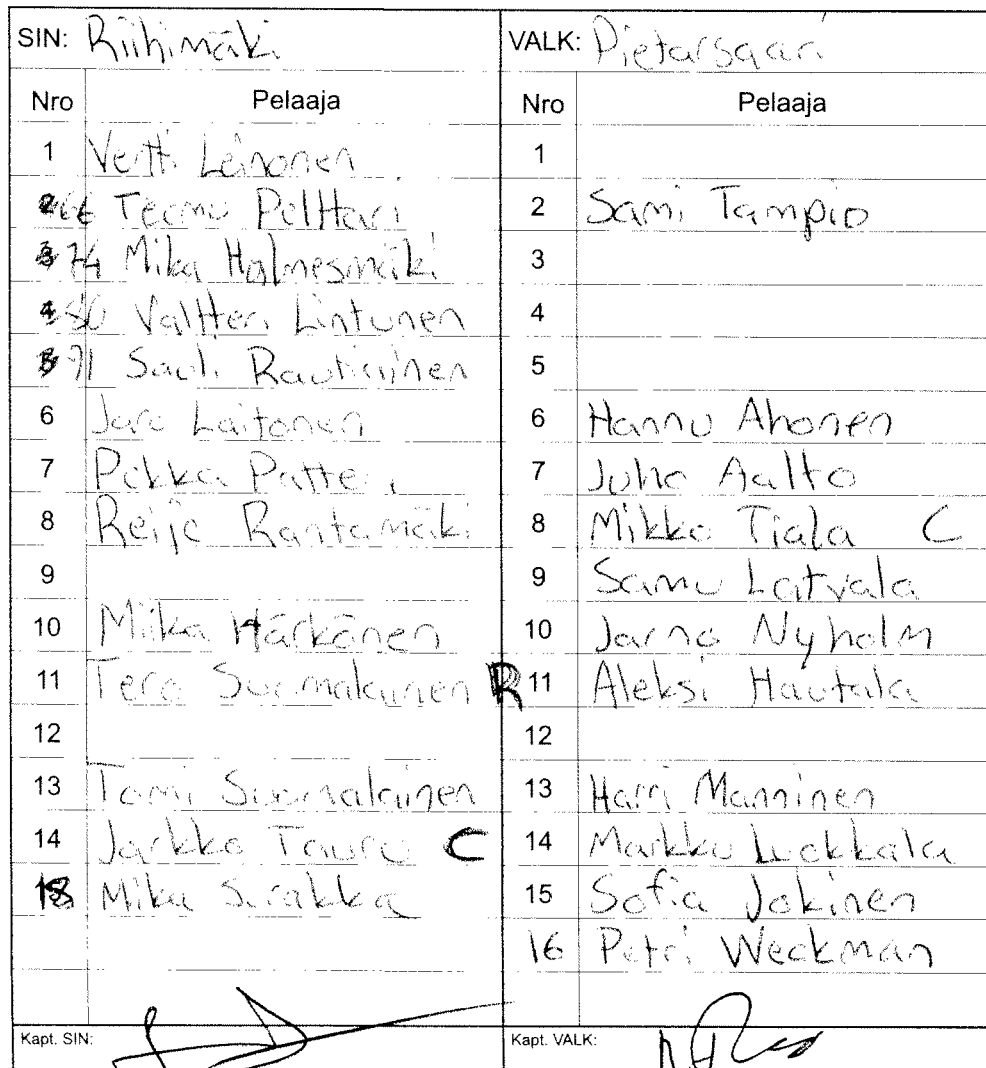 SIN: Riihimäki
Nro Pelaaja
1 Vertti Leinonen
66 Teemu Pelttari
74 Mika Holmesmäki
80 Valtteri Lintunen
91 Sauli Rautiainen
6 Jari Laitonen
7 Pekka Patteri
8 Reijo Rantamäki
9
10 Miika Härkönen
11 Tero Suomalainen R
12
13 Tomi Suomalainen
14 Jarkko Tauru C
18 Mika Surakka
Kapt. SIN:
VALK: Pietarsaari
Nro Pelaaja
1
2 Sami Tampio
3
4
5
6 Hannu Ahonen
7 Juho Aalto
8 Mikko Tiala C
9 Samu Latvala
10 Jarno Nyholm
11 Aleksi Hautala
12
13 Harri Manninen
14 Markku Luokkala
15 Sofia Jokinen
16 Petri Weckman
Kapt. VALK: